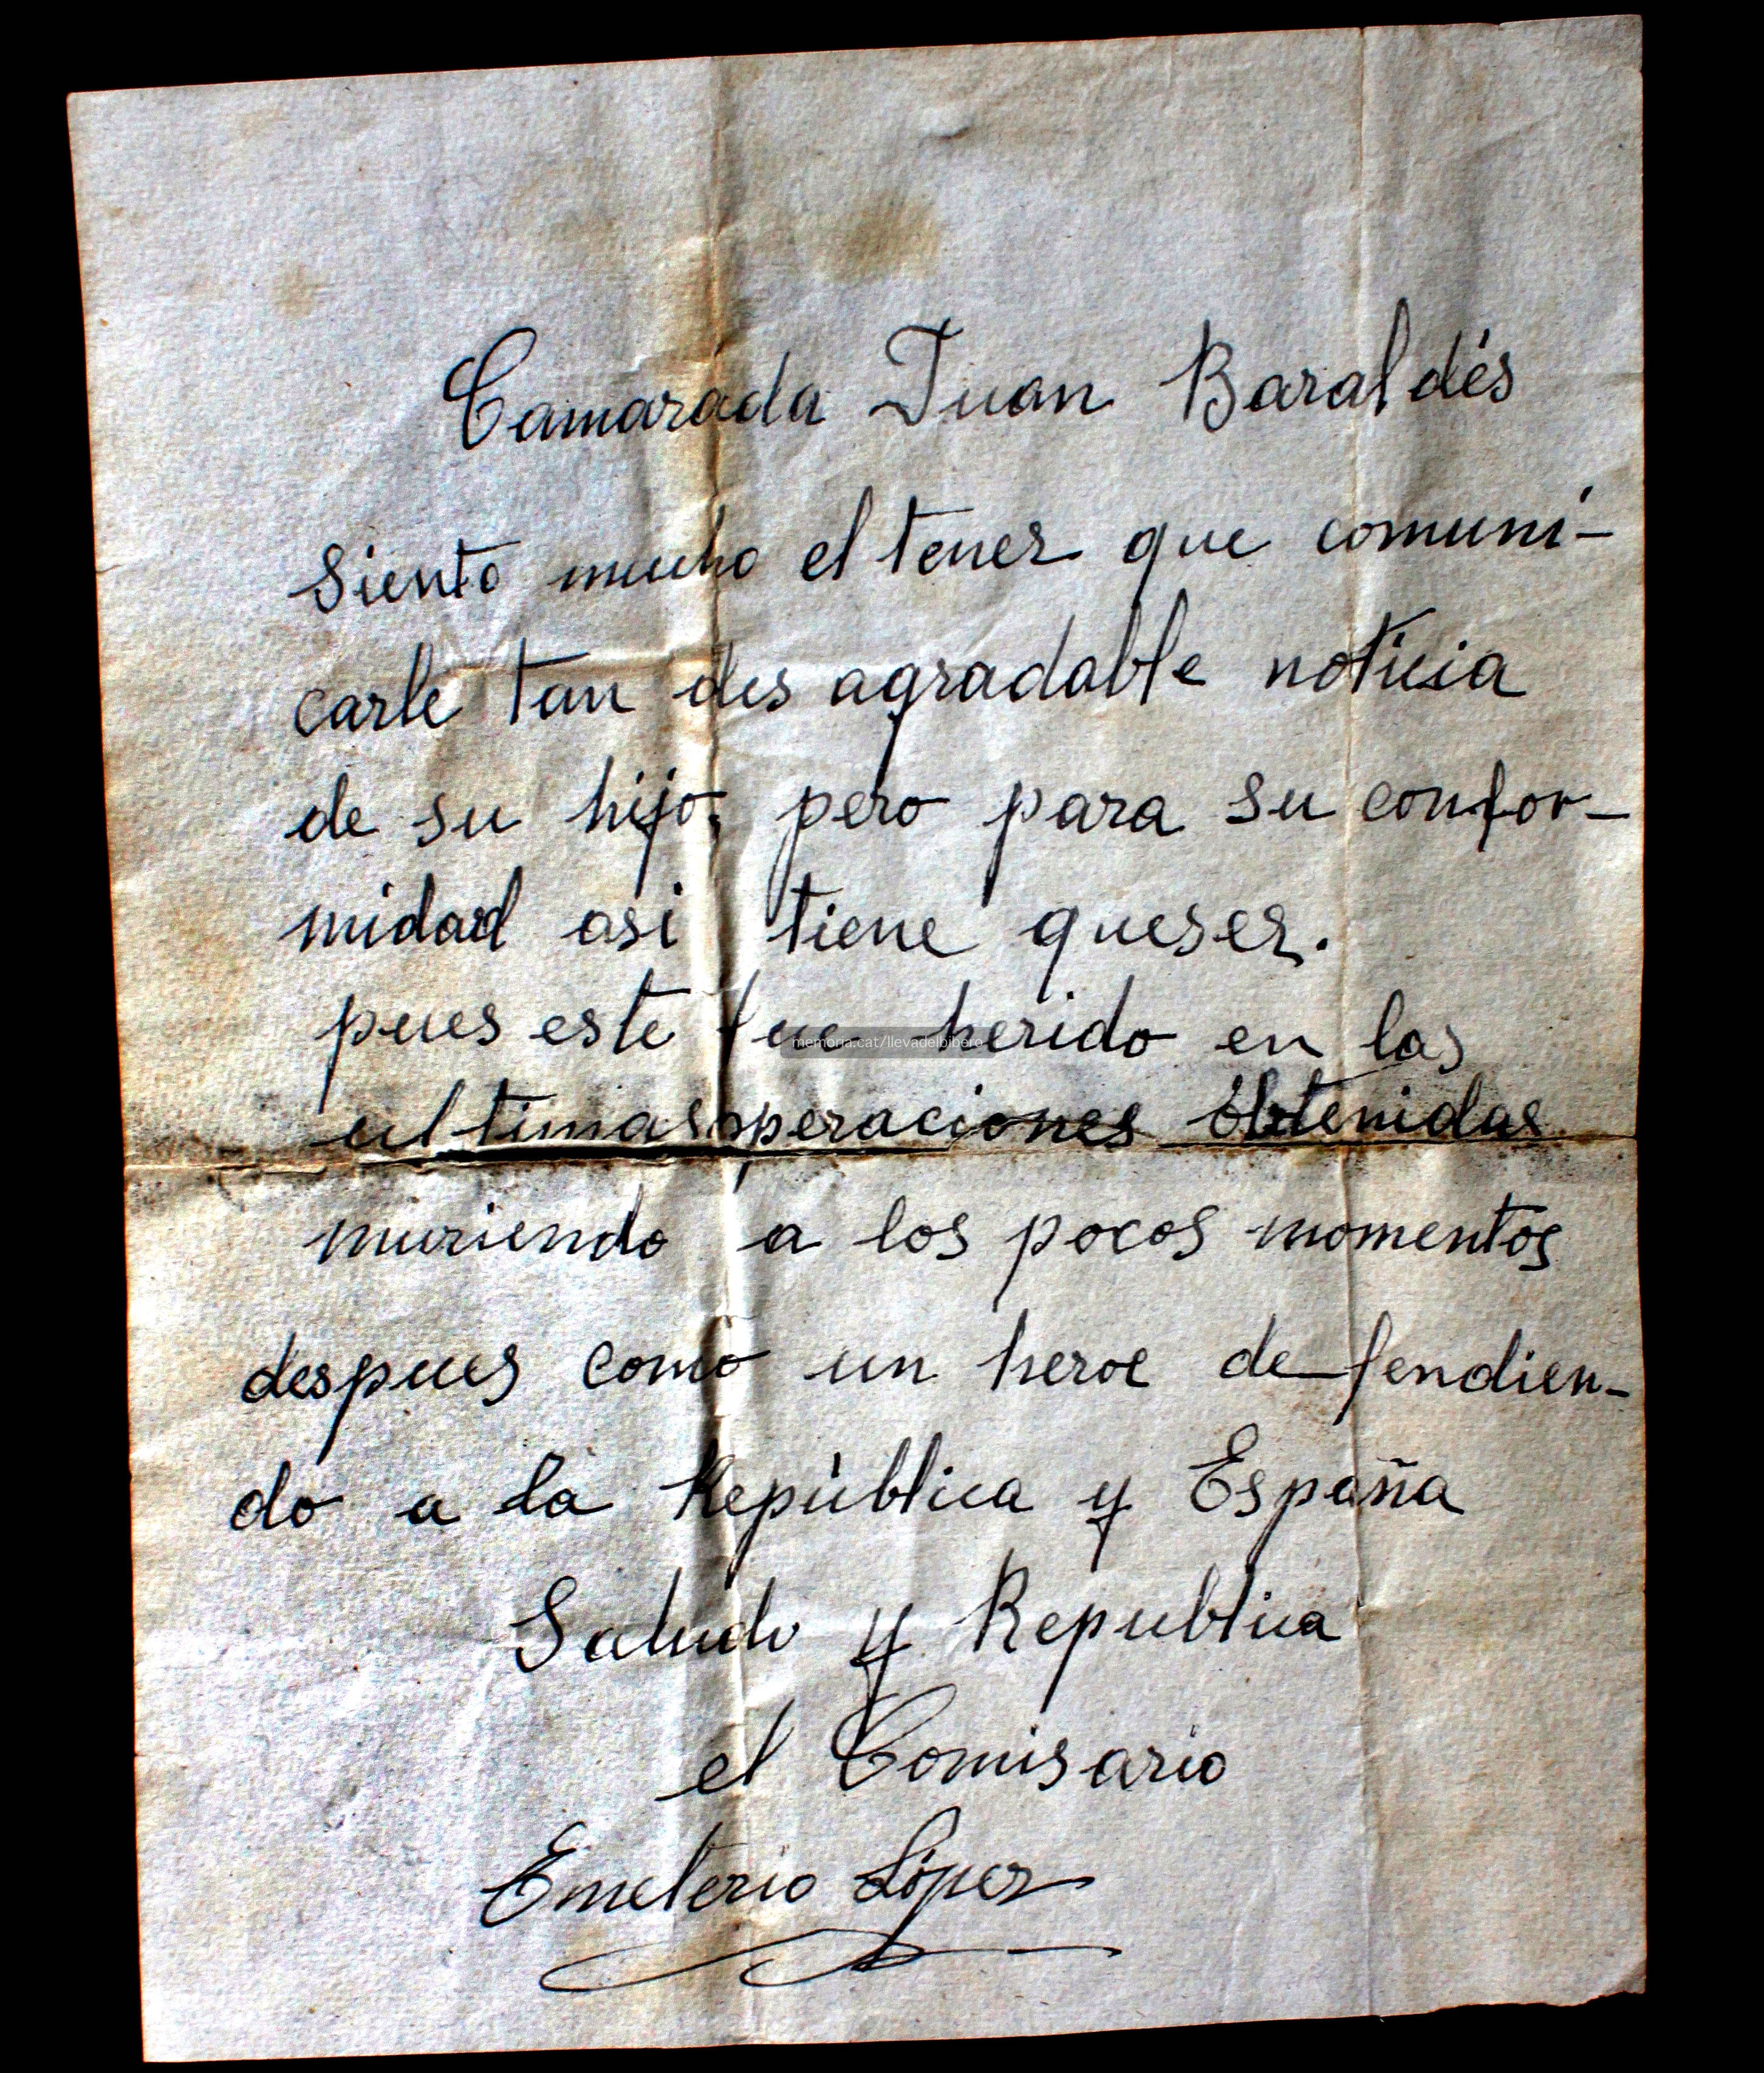 Camarada Juan Baraldés
Siento mucho el tener que comuni-
carle tan des agradable noticia
de su hijo, pero para su confor-
midad asi tiene queser.
pues este fue herido en las
ultimas operaciones obtenidas
muriendo a los pocos momentos
despues como un heroe defendien-
do a la República y España
Saludo y Republica
el Comisario
Emeterio López
memoria.cat/llevadelbibero